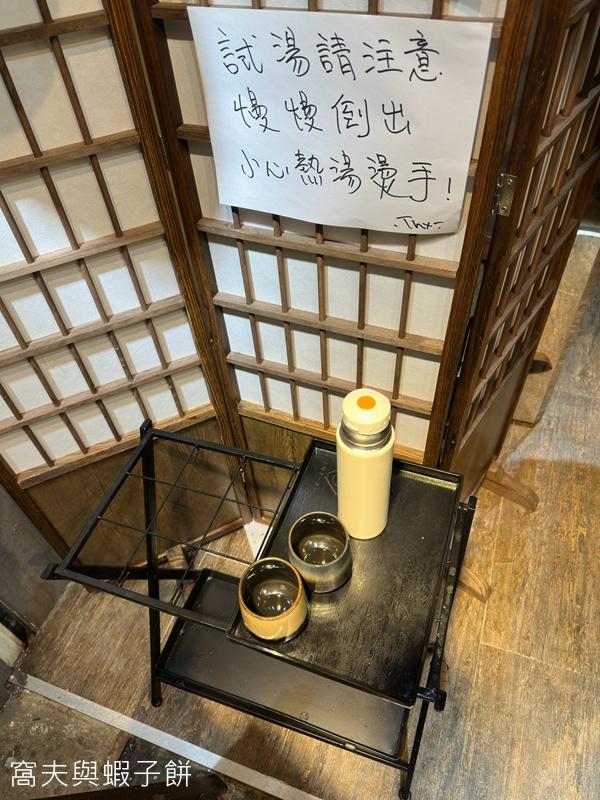 試湯請注意
慢慢倒出
小心熱湯燙手!
-Thx-
窩夫與蝦子餅